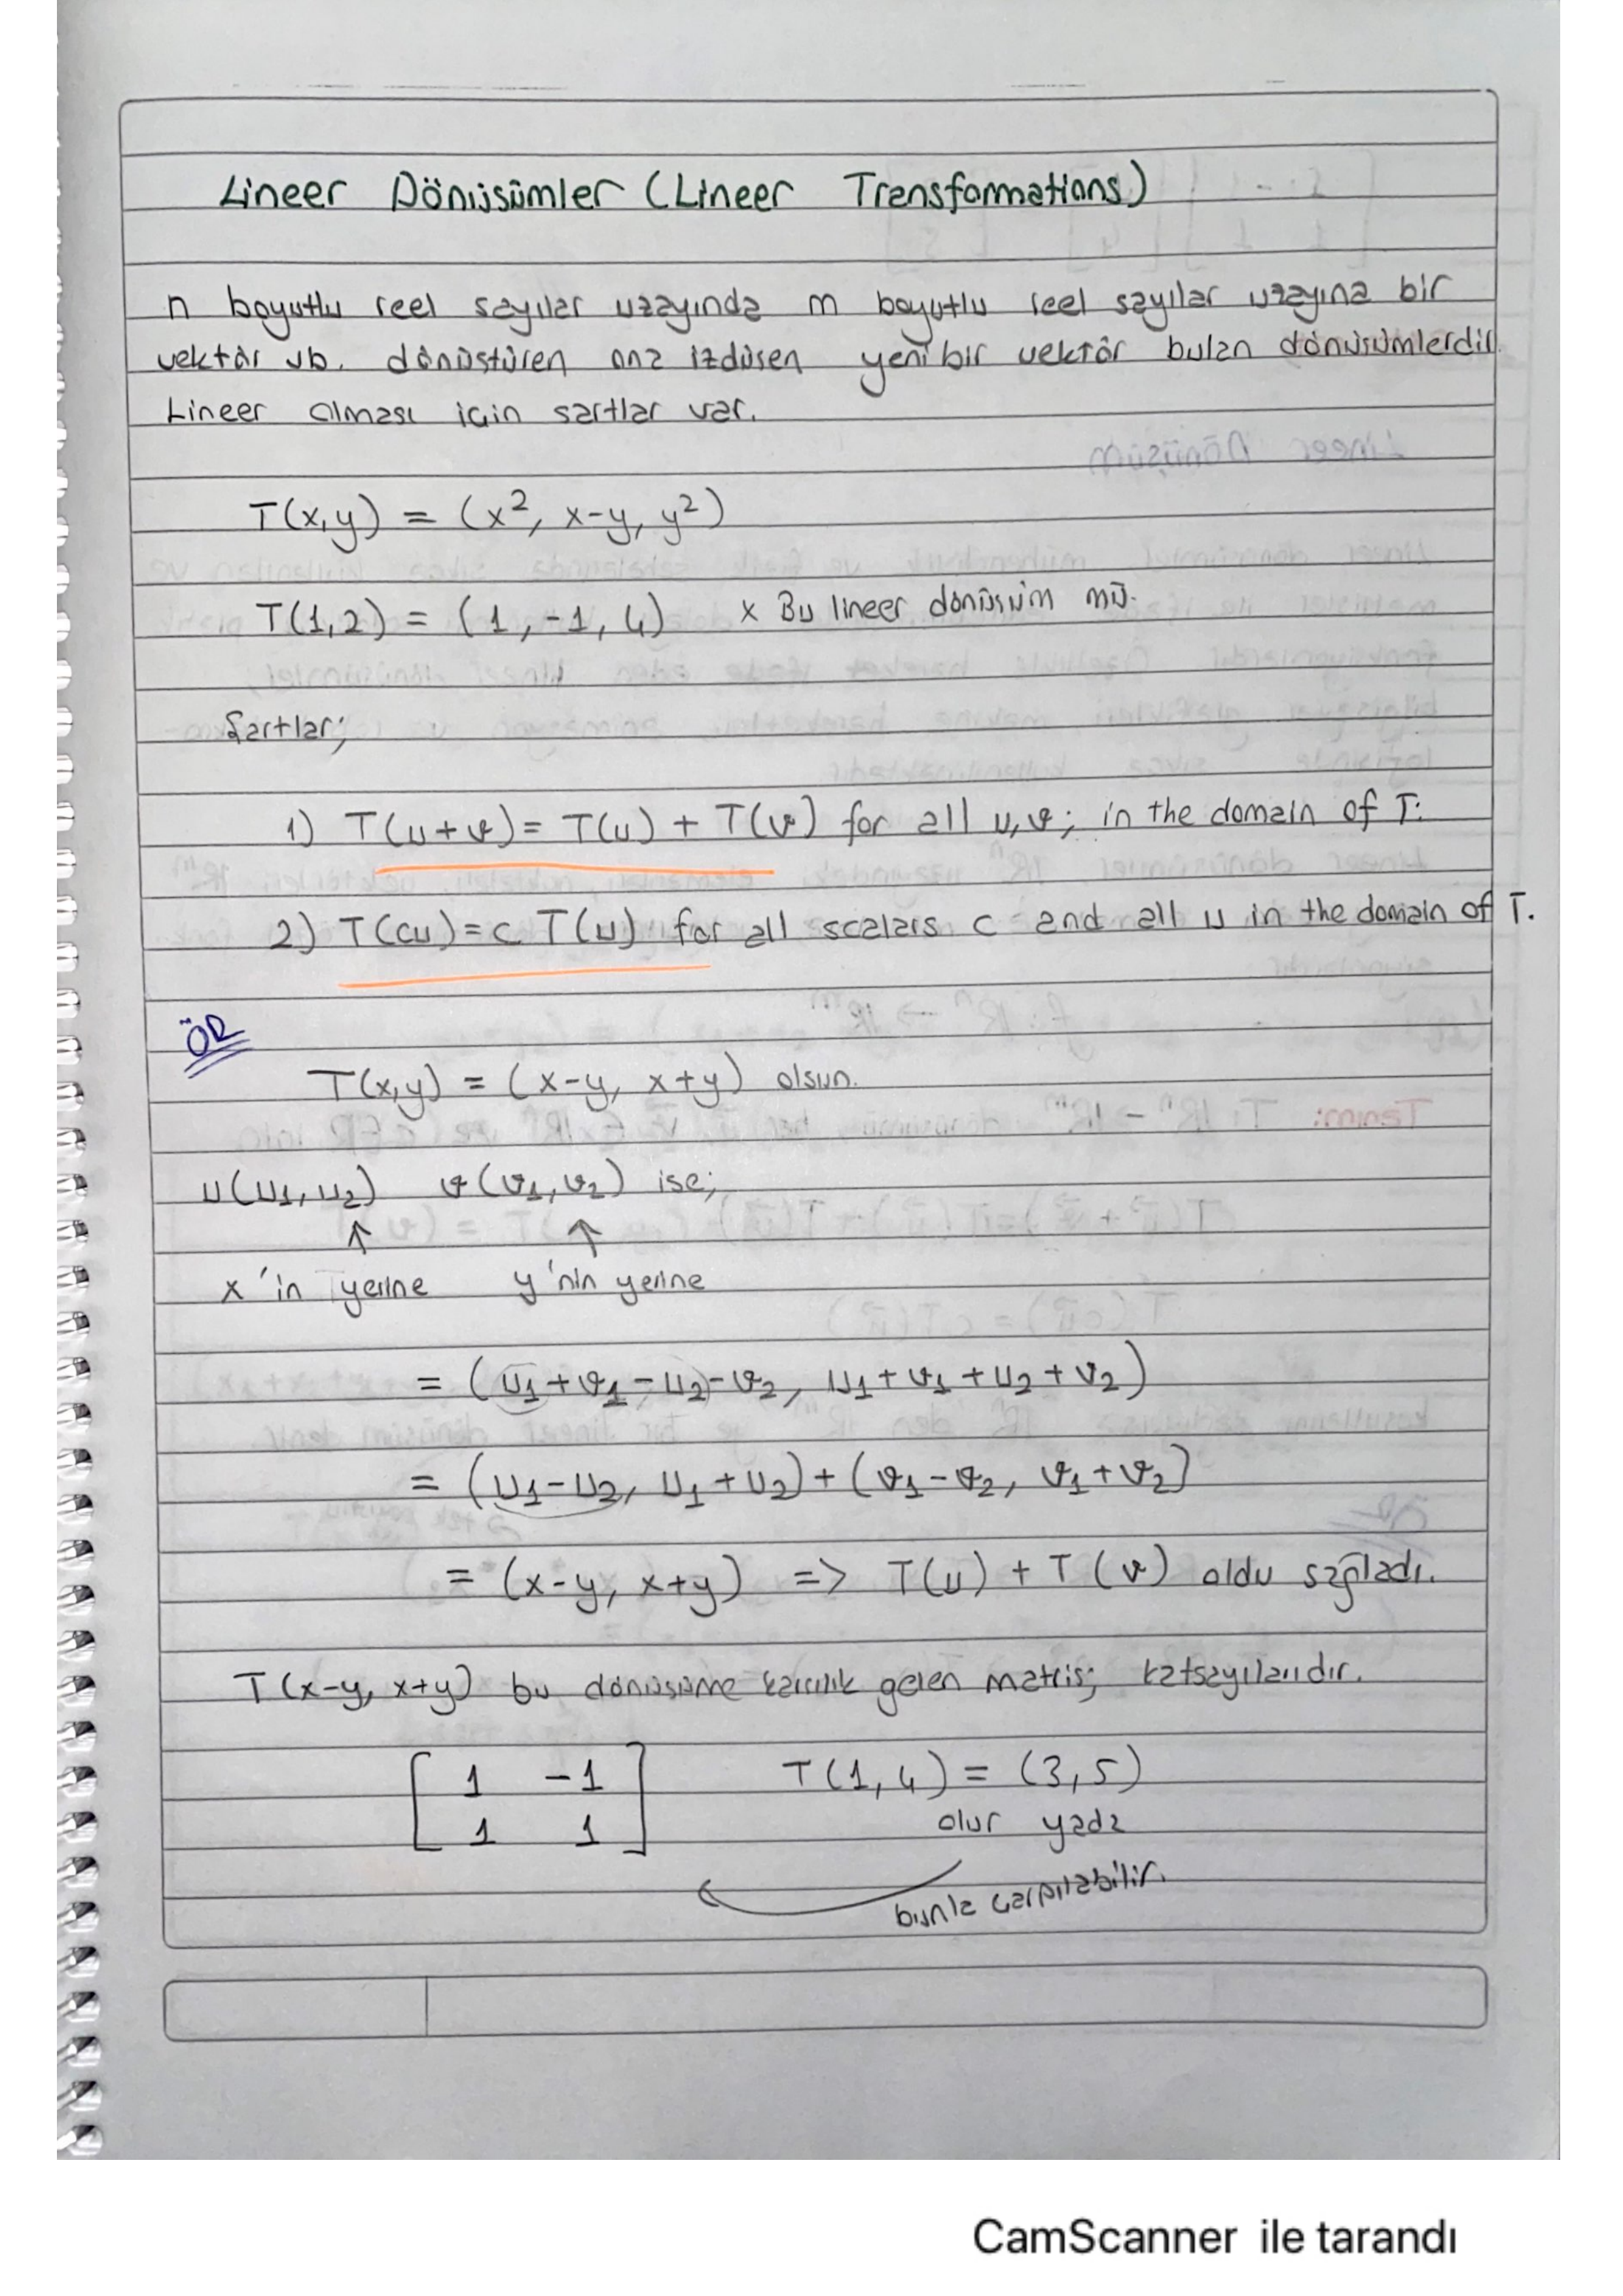 Lineer Dönüsümler (Lineer Transformations)
n boyutlu reel sayılar uzayında m boyutlu reel sayılar uzayına bir
vektör vb. dönüstüren ona izdüsen yeni bir vektör bulan dönüsümlerdir.
Lineer olması için sartlar var.
T(x,y) = (x², x-y, y²)
T(1,2) = (1, -1, 4) x Bu lineer dönüsüm mü.
Sartlar;
1) T(u+v) = T(u) + T(v) for all u,v; in the domain of T.
2) T(cu) = c T(u) for all scalars c and all u in the domain of T.
ÖR
T(x,y) = (x-y, x+y) olsun.
u(u1,u2) v(v1,v2) ise;
↑ ↑
x'in yerine y'nin yerine
= (u1+v1-u2-v2, u1+v1+u2+v2)
= (u1-u2, u1+u2)+(v1-v2, v1+v2)
= (x-y, x+y) => T(u) + T(v) oldu sağladı.
T(x-y, x+y) bu dönüsüme karsılık gelen matris; katsayılarıdır.
[1 -1] T(1,4) = (3,5)
[1 1] olur yada
bunla çarpılabilir.
CamScanner ile tarandı